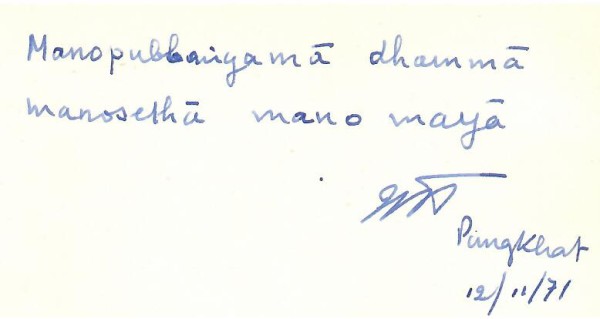 Manopubbaṅgamā dhammā
manosethā mano mayā
PungKhat
12/11/71